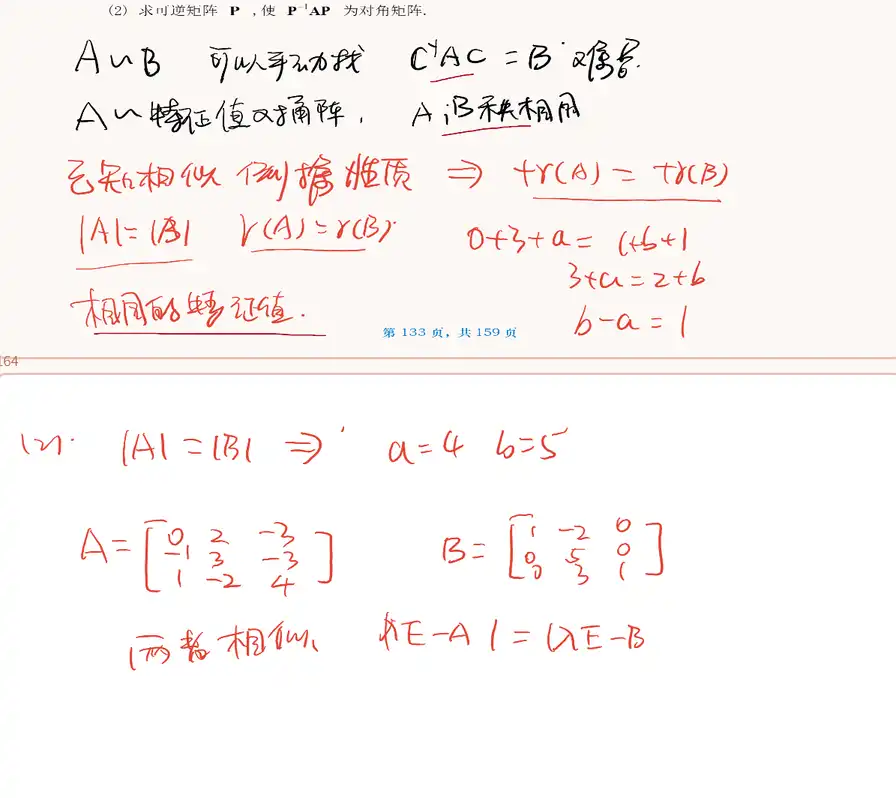 (2) 求可逆矩阵 P ,使 P⁻¹AP 为对角矩阵.
A∽B 可以手动找 C⁻¹AC = B
A∽ 特征值对角阵, A,B 秩相同
已知相似 性质 ⇒ tr(A) = tr(B)
|A|=|B| r(A)=r(B) 0+3+a = 1+b+1
3+a=2+b
相同的特征值. b-a=1
第 133 页, 共 159 页
164
(2). |A|=|B| ⇒ a=4 b=5
A= [ 0 2 -3
-1 3 -3
1 -2 4 ]
B= [ 1 -2 0
0 5 0
0 3 1 ]
两者相似, |λE-A|=|λE-B